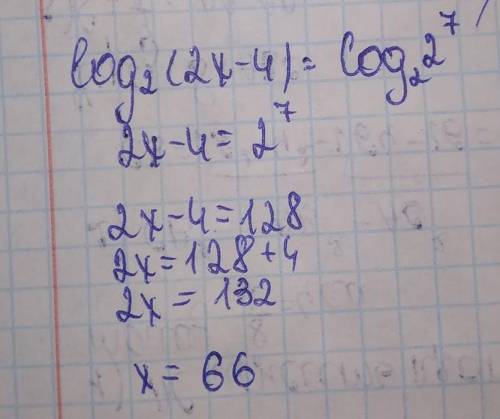 log₂(2x-4)= log₂2⁷
2x-4=2⁷
2x-4=128
2x=128+4
2x=132
x=66